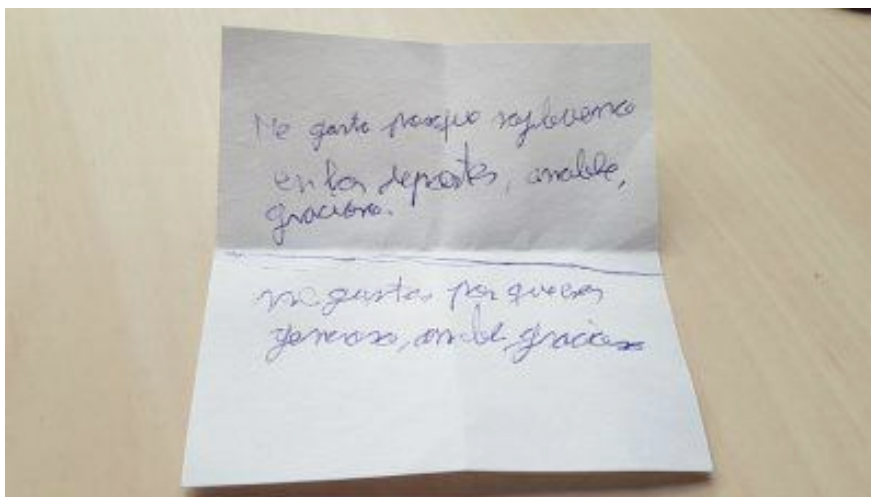 Me gusto porque soy bueno
en los deportes, amable,
gracioso.
me gustas por que eres
generoso, amable, gracioso